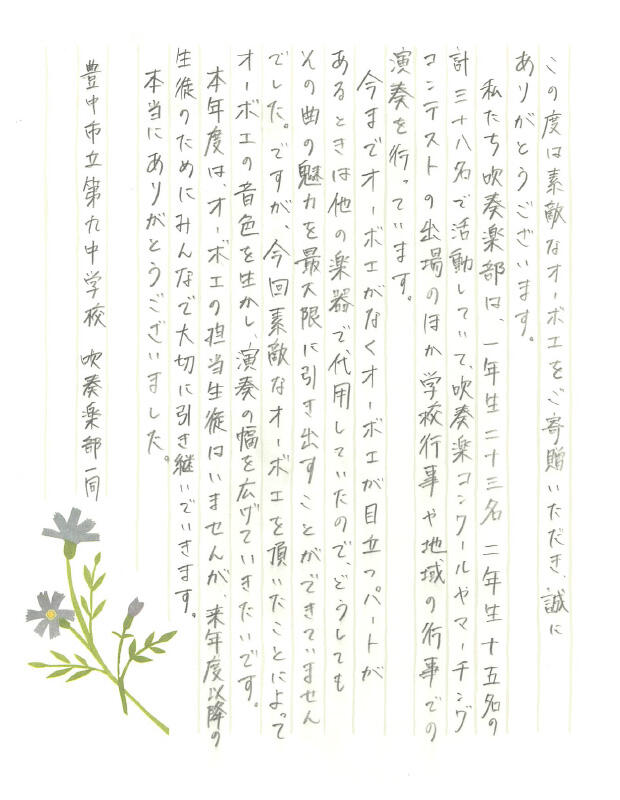 この度は素敵なオーボエをご寄贈いただき、誠に
ありがとうございます。
私たち吹奏楽部は、一年生二十三名 二年生十五名の
計三十八名で活動していて、吹奏楽コンクールやマーチング
コンテストの出場のほか学校行事や地域の行事での
演奏を行っています。
今までオーボエがなくオーボエが目立つパートが
あるときは他の楽器で代用していたので、どうしても
その曲の魅力を最大限に引き出すことができていません
でした。ですが、今回素敵なオーボエを頂いたことによって
オーボエの音色を生かし、演奏の幅を広げていきたいです。
本年度は、オーボエの担当生徒はいませんが、来年度以降の
生徒のためにみんなで大切に引き継いでいきます。
本当にありがとうございました。
豊中市立第九中学校 吹奏楽部一同